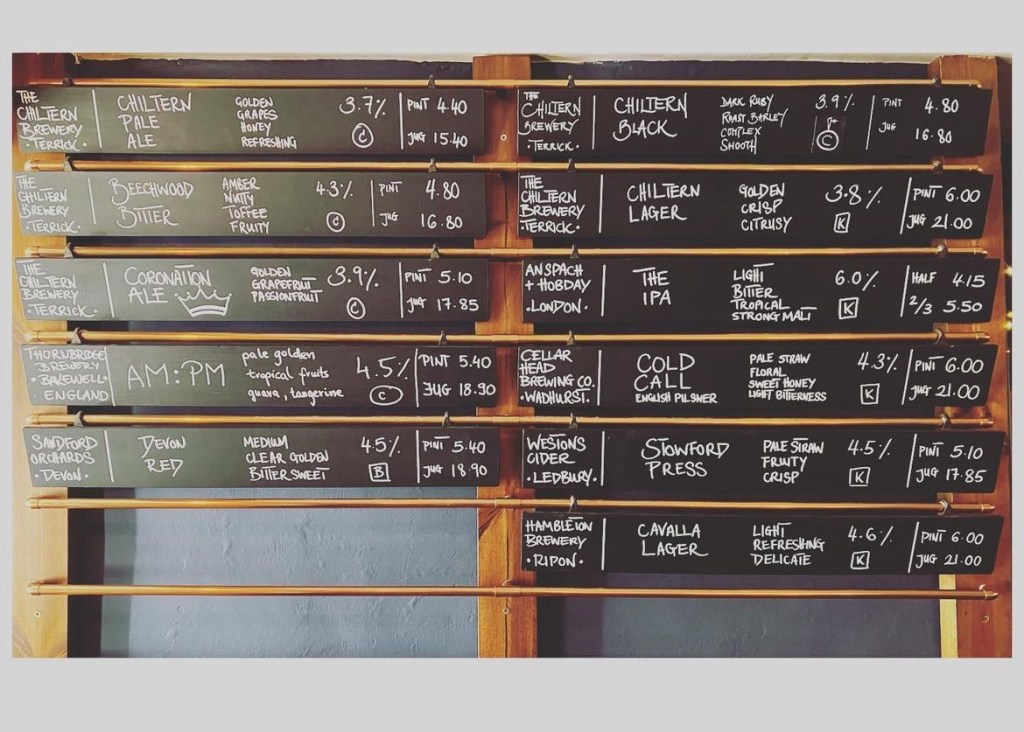 THE
CHILTERN
BREWERY
·TERRICK·
CHILTERN
PALE
ALE
GOLDEN
GRAPES
HONEY
REFRESHING
3.7%
C
PINT 4.40
JUG 15.40
THE
CHILTERN
BREWERY
·TERRICK·
BEECHWOOD
BITTER
AMBER
NUTTY
TOFFEE
FRUITY
4.3%
C
PINT 4.80
JUG 16.80
THE
CHILTERN
BREWERY
·TERRICK·
CORONATION
ALE
GOLDEN
GRAPEFRUIT
PASSIONFRUIT
3.9%
C
PINT 5.10
JUG 17.85
THORNBRIDGE
BREWERY
·BAKEWELL·
ENGLAND
AM:PM
pale golden
tropical fruits
guava, tangerine
4.5%
C
PINT 5.40
JUG 18.90
SANDFORD
ORCHARDS
·DEVON·
DEVON
RED
MEDIUM
CLEAR GOLDEN
BITTERSWEET
4.5%
B
PINT 5.40
JUG 18.90
THE
CHILTERN
BREWERY
·TERRICK·
CHILTERN
BLACK
DARK RUBY
ROAST BARLEY
COMPLEX
SMOOTH
3.9%
C
PINT 4.80
JUG 16.80
THE
CHILTERN
BREWERY
·TERRICK·
CHILTERN
LAGER
GOLDEN
CRISP
CITRUSY
3.8%
K
PINT 6.00
JUG 21.00
ANSPACH
+ HOBDAY
·LONDON·
THE
IPA
LIGHT
BITTER
TROPICAL
STRONG MALT
6.0%
K
HALF 4.15
2/3 5.50
CELLAR
HEAD
BREWING CO.
·WADHURST·
COLD
CALL
ENGLISH PILSNER
PALE STRAW
FLORAL
SWEET HONEY
LIGHT BITTERNESS
4.3%
K
PINT 6.00
JUG 21.00
WESTONS
CIDER
·LEDBURY·
STOWFORD
PRESS
PALE STRAW
FRUITY
CRISP
4.5%
K
PINT 5.10
JUG 17.85
HAMBLETON
BREWERY
·RIPON·
CAVALLA
LAGER
LIGHT
REFRESHING
DELICATE
4.6%
K
PINT 6.00
JUG 21.00